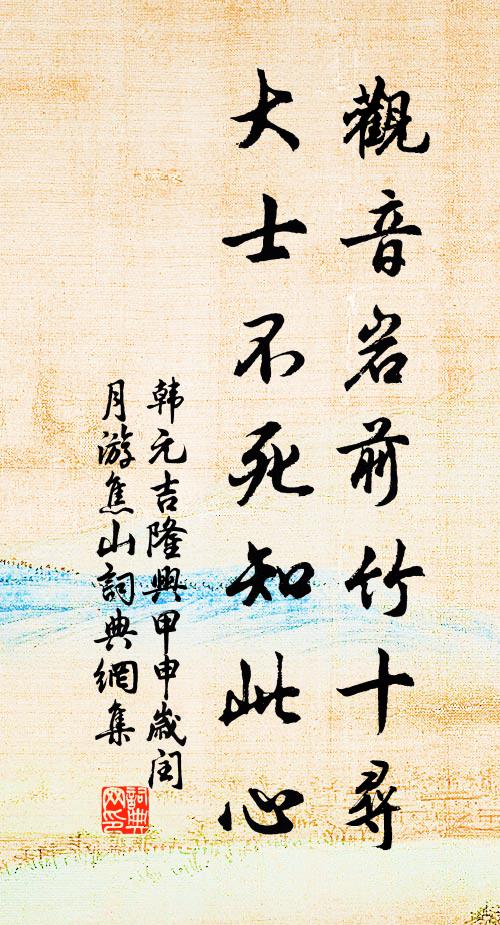 觀音岩前竹十尋
大士不死知此心
韩元吉隆興甲申歲闰
月游焦山詞典網集
詞典
网印